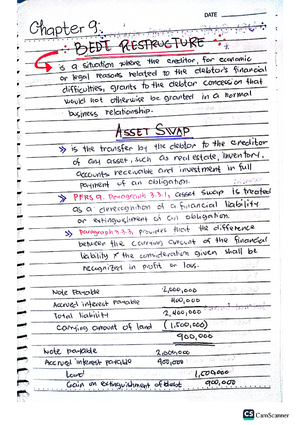 DATE
Chapter 9:
BEDT RESTRUCTURE
is a situation where the creditor, for economic
or legal reasons related to the debtor's financial
difficulties, grants to the debtor concession that
would not otherwise be granted in a normal
business relationship.
ASSET SWAP
» is the transfer by the debtor to the creditor
of any asset, such as real estate, inventory,
accounts receivable and investment in full
payment of an obligation.
» PFRS 9. Paragraph 3.3.1, asset swap is treated
as a derecognition of a financial liability
or extinguishment of an obligation.
» Paragraph 3.3.3, provides that the difference
between the carrying amount of the financial
liability & the consideration given shall be
recognized in profit or loss.
Note Payable 2,000,000
Accrued interest payable 400,000
Total liability 2,400,000
Carrying amount of land (1,500,000)
900,000
Note payable 2,000,000
Accrued interest payable 400,000
Land 1,500,000
Gain on extinguishment of debt 900,000
CS CamScanner